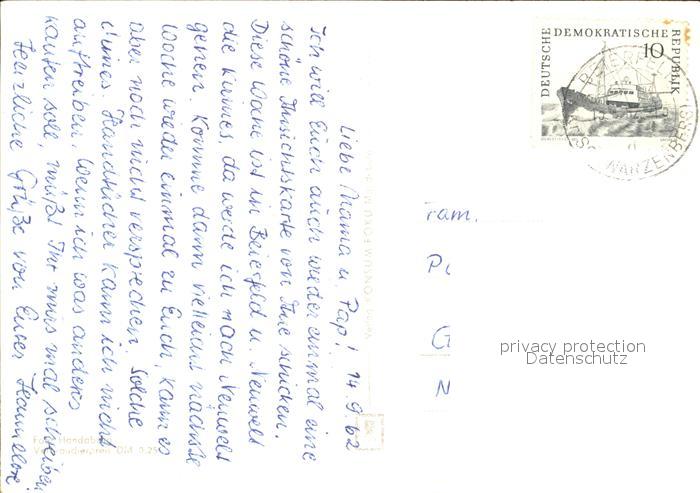 Liebe Mama u. Pap! 14.9.62
Ich will Euch auch wieder einmal eine
schöne Ansichtskarte von Aue schicken.
Diese Woche ist in Beierfeld u. Neuwelt
die Kirmes, da werde ich nach Neuwelt
gehen. Komme dann vielleicht nächste
Woche wieder einmal zu Euch, kann es
aber noch nicht versprechen. Solche
kleines Handtücher kann ich nicht
auftreiben. Wenn ich was anderes
kaufen soll, müßt Ihr mirs mal schreiben.
Herzliche Grüße von Eurer Hannelore
DEUTSCHE DEMOKRATISCHE REPUBLIK
10
BEIERFELD
SCHWARZENBERG
Fam.
G
N
privacy protection
Datenschutz
Foto Handabzug
Verbraucherpreis DM 0,25